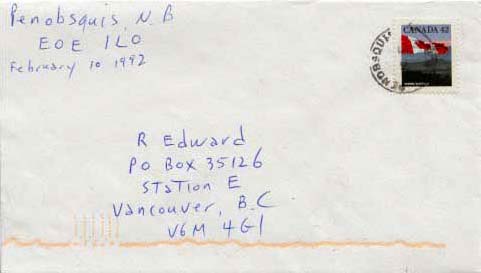 Penobsquis N.B
E0E 1L0
February 10 1992
CANADA 42
PENOBSQUIS
R Edward
PO BOX 35126
STATION E
Vancouver, B.C
V6M 4G1